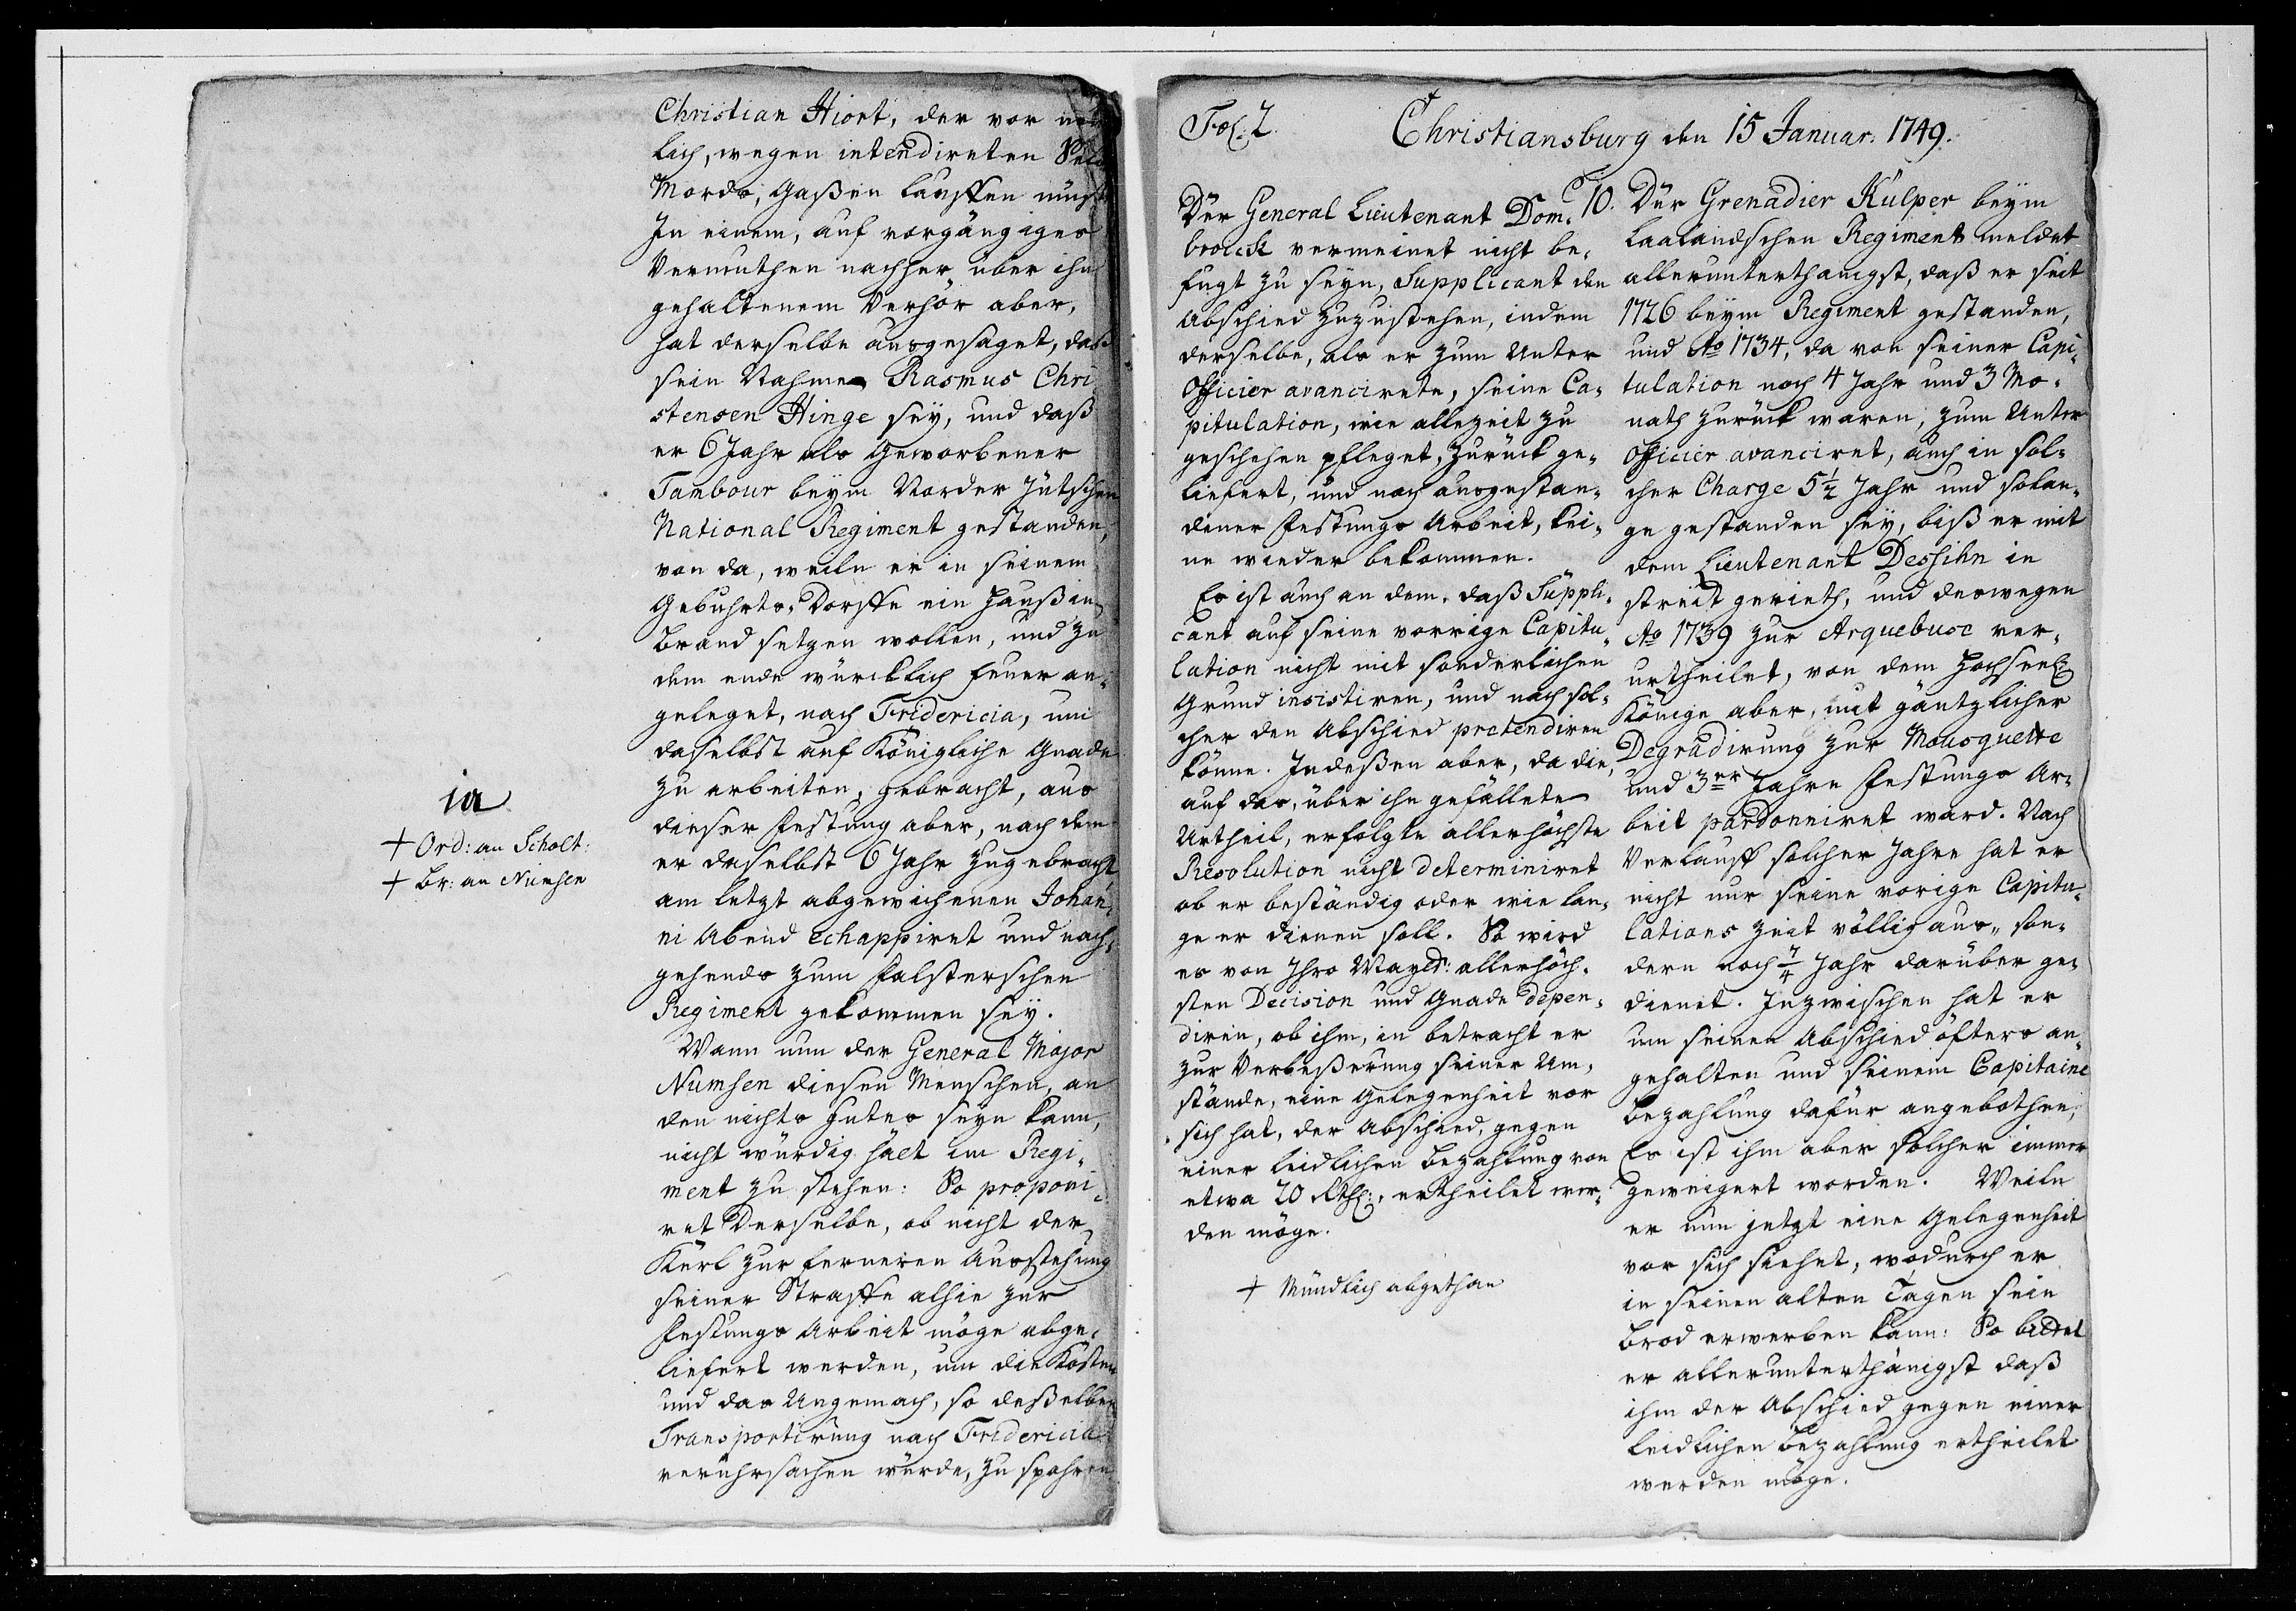 Christian Hiort, der vor neu
lich, wegen intendireten Selb
Mords, Gaßen lauffen müst
In einem, auf vorgängiges
Vermuthen nachher über ihn
gehaltenem Verhör aber,
hat derselbe ausgesaget, daß
sein Nahme Rasmus Chri
stensen Hinge sey, und daß
er 6 Jahr als Geworbener
Tambour beym Norder Jütschen
National Regiment gestanden,
von da, weiln er in seinem
Gebuhrts-Dorffe ein Hauß in
brand setzen wollen, und zu
dem ende würcklich feuer an-
geleget, nach Fridericia, um
daselbst auf Königliche Gnade
zu arbeiten, gebracht, aus
dieser Festung aber, nach dem
er daselbst 6 Jahr zugebracht
am letzt abgewichenen Johan-
ni Abend echappiret und nach-
gehends zum Falsterschen
Regiment gekommen sey.
Wann nun der General Major
Numsen diesen Menschen, an
den nichts gutes seyn kann,
nicht würdig hält im Regi-
ment zu stehen: So proponi-
ret Derselbe, ob nicht der
Kerl zur ferneren Ausstehung
seiner Straffe alhie zur
Festungs Arbeit möge abge-
liefert werden, um die Kosten
und das Ungemach, so deßelben
Transportirung nach Fridericia
veruhrsachen würde, zu spahren
ia
+ Ord: an Scholt:
+ Br: an Numsen
Fol. 2.
Christiansburg den 15 Januar. 1749.
Der General Lieutenant Dom-
broick vermeinet nicht be-
fugt zu seyn, Supplicant den
Abschied zuzustehen, indem
derselbe, als er zum Unter
Officier avancirete, seine Ca-
pitulation, wie allezeit zu
geschehen pfleget, zurück ge-
liefert, und nach ausgestan-
dener Festungs Arbeit, kei-
ne wieder bekommen.
Es ist auch an dem, daß Suppli-
cant auf seine vorrige Capitu-
lation nicht mit sonderlichen
Grund insistiren, und nach sol-
cher den Abschied pretendiren
könne. Indeßen aber, da die,
auf das, über ihn gefällete
Urtheil, erfolgte allerhöchste
Resolution nicht determiniret
ob er beständig oder wie lan-
ge er dienen soll. So wird
es von Ihro Mayest: allerhöch-
sten Decision und Gnade depen-
diren, ob ihm, in betracht er
zur Verbeßerung seiner Um-
stände, eine Gelegenheit vor
sich hat, der Abschied, gegen
einer leidlichen bezahlung von
etwa 20 Rthl:, ertheilet wer-
den möge.
+ Mündlich abgethan
10. Der Grenadier Külper beym
Laalandschen Regiment meldet
allerunterthänigst, daß er seit
1726 beym Regiment gestanden,
und Ao 1734, da von seiner Capi-
tulation noch 4 Jahr und 3 Mo-
nath zurück waren, zum Unter
Officier avanciret, auch in sol-
cher Charge 5½ Jahr und solan-
ge gestanden sey, biß er mit
dem Lieutenant Dessihn in
streit gerieth, und deswegen
Ao 1739 zur Arquebuse ver-
urtheilet, von dem Hochseel:
Könige aber, mit gäntzlicher
Degradirung zur Mousquette
und 3er Jahre Festungs Ar-
beit pardonniret ward. Nach
Verlauff solcher Jahre hat er
nicht nur seine vorige Capitu-
lations zeit völlig aus-, son-
dern noch 7/4 Jahr darüber ge-
dienet. Inzwischen hat er
um seinen Abschied öfters an-
gehalten und seinem Capitaine
bezahlung dafür angebothen;
Es ist ihm aber solcher immer
geweigert worden. Weiln
er nun jetzt eine Gelegenheit
vor sich siehet, wodurch er
in seinen alten Tagen sein
brod erwerben kann: So bittet
er allerunterthänigst daß
ihm der Abschied gegen einer
leidlichen bezahlung ertheilet
werden möge.